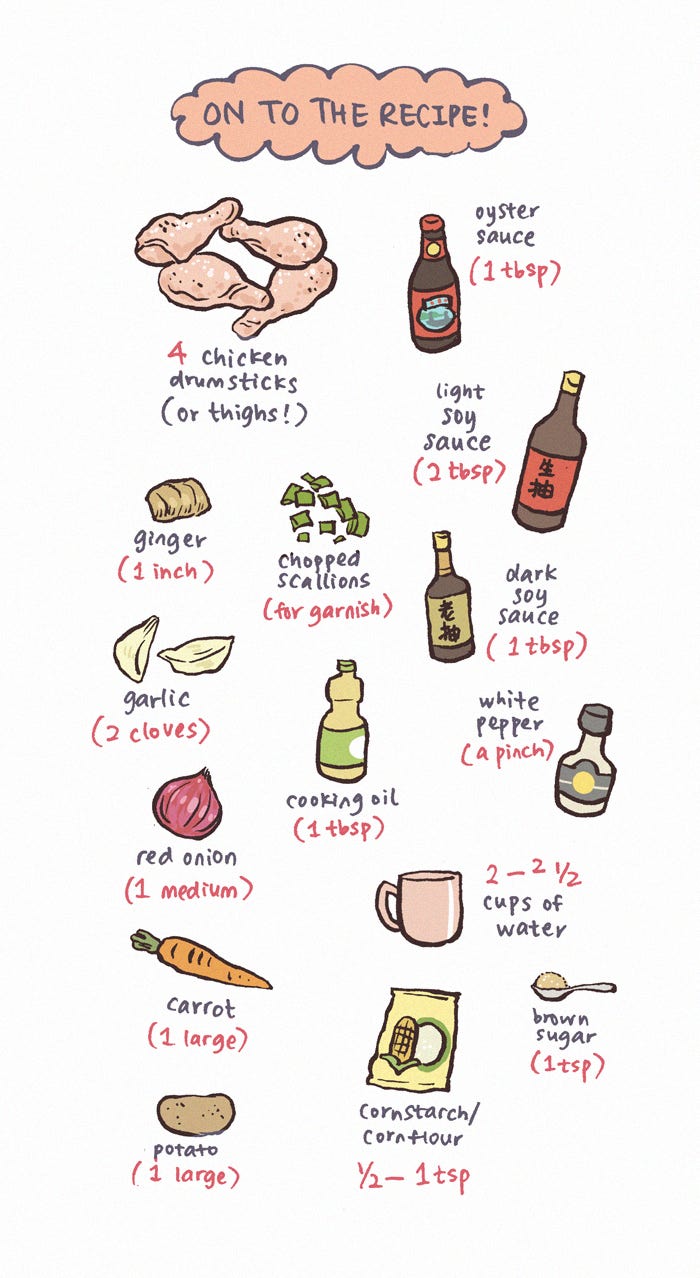 ON TO THE RECIPE!
4 chicken
drumsticks
(or thighs!)
oyster
sauce
(1 tbsp)
light
soy
sauce
(2 tbsp)
生
抽
ginger
(1 inch)
chopped
scallions
(for garnish)
老
抽
dark
soy
sauce
(1 tbsp)
garlic
(2 cloves)
cooking oil
(1 tbsp)
white
pepper
(a pinch)
red onion
(1 medium)
2 – 2 1/2
cups of
water
carrot
(1 large)
brown
sugar
(1 tsp)
potato
(1 large)
cornstarch/
cornflour
1/2 – 1 tsp